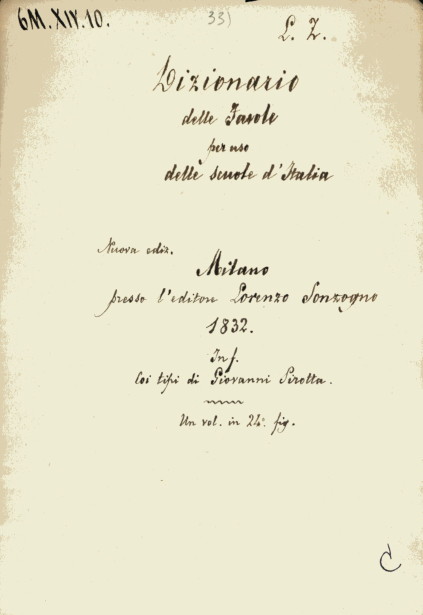 6M.XIV.10.
33)
L. Z.
Dizionario
delle Favole
per uso
delle scuole d'Italia
Nuova ediz.
Milano
presso l'editore Lorenzo Sonzogno
1832.
In f.
Coi tipi di Giovanni Pirotta.
Un vol. in 24.° fig.
C